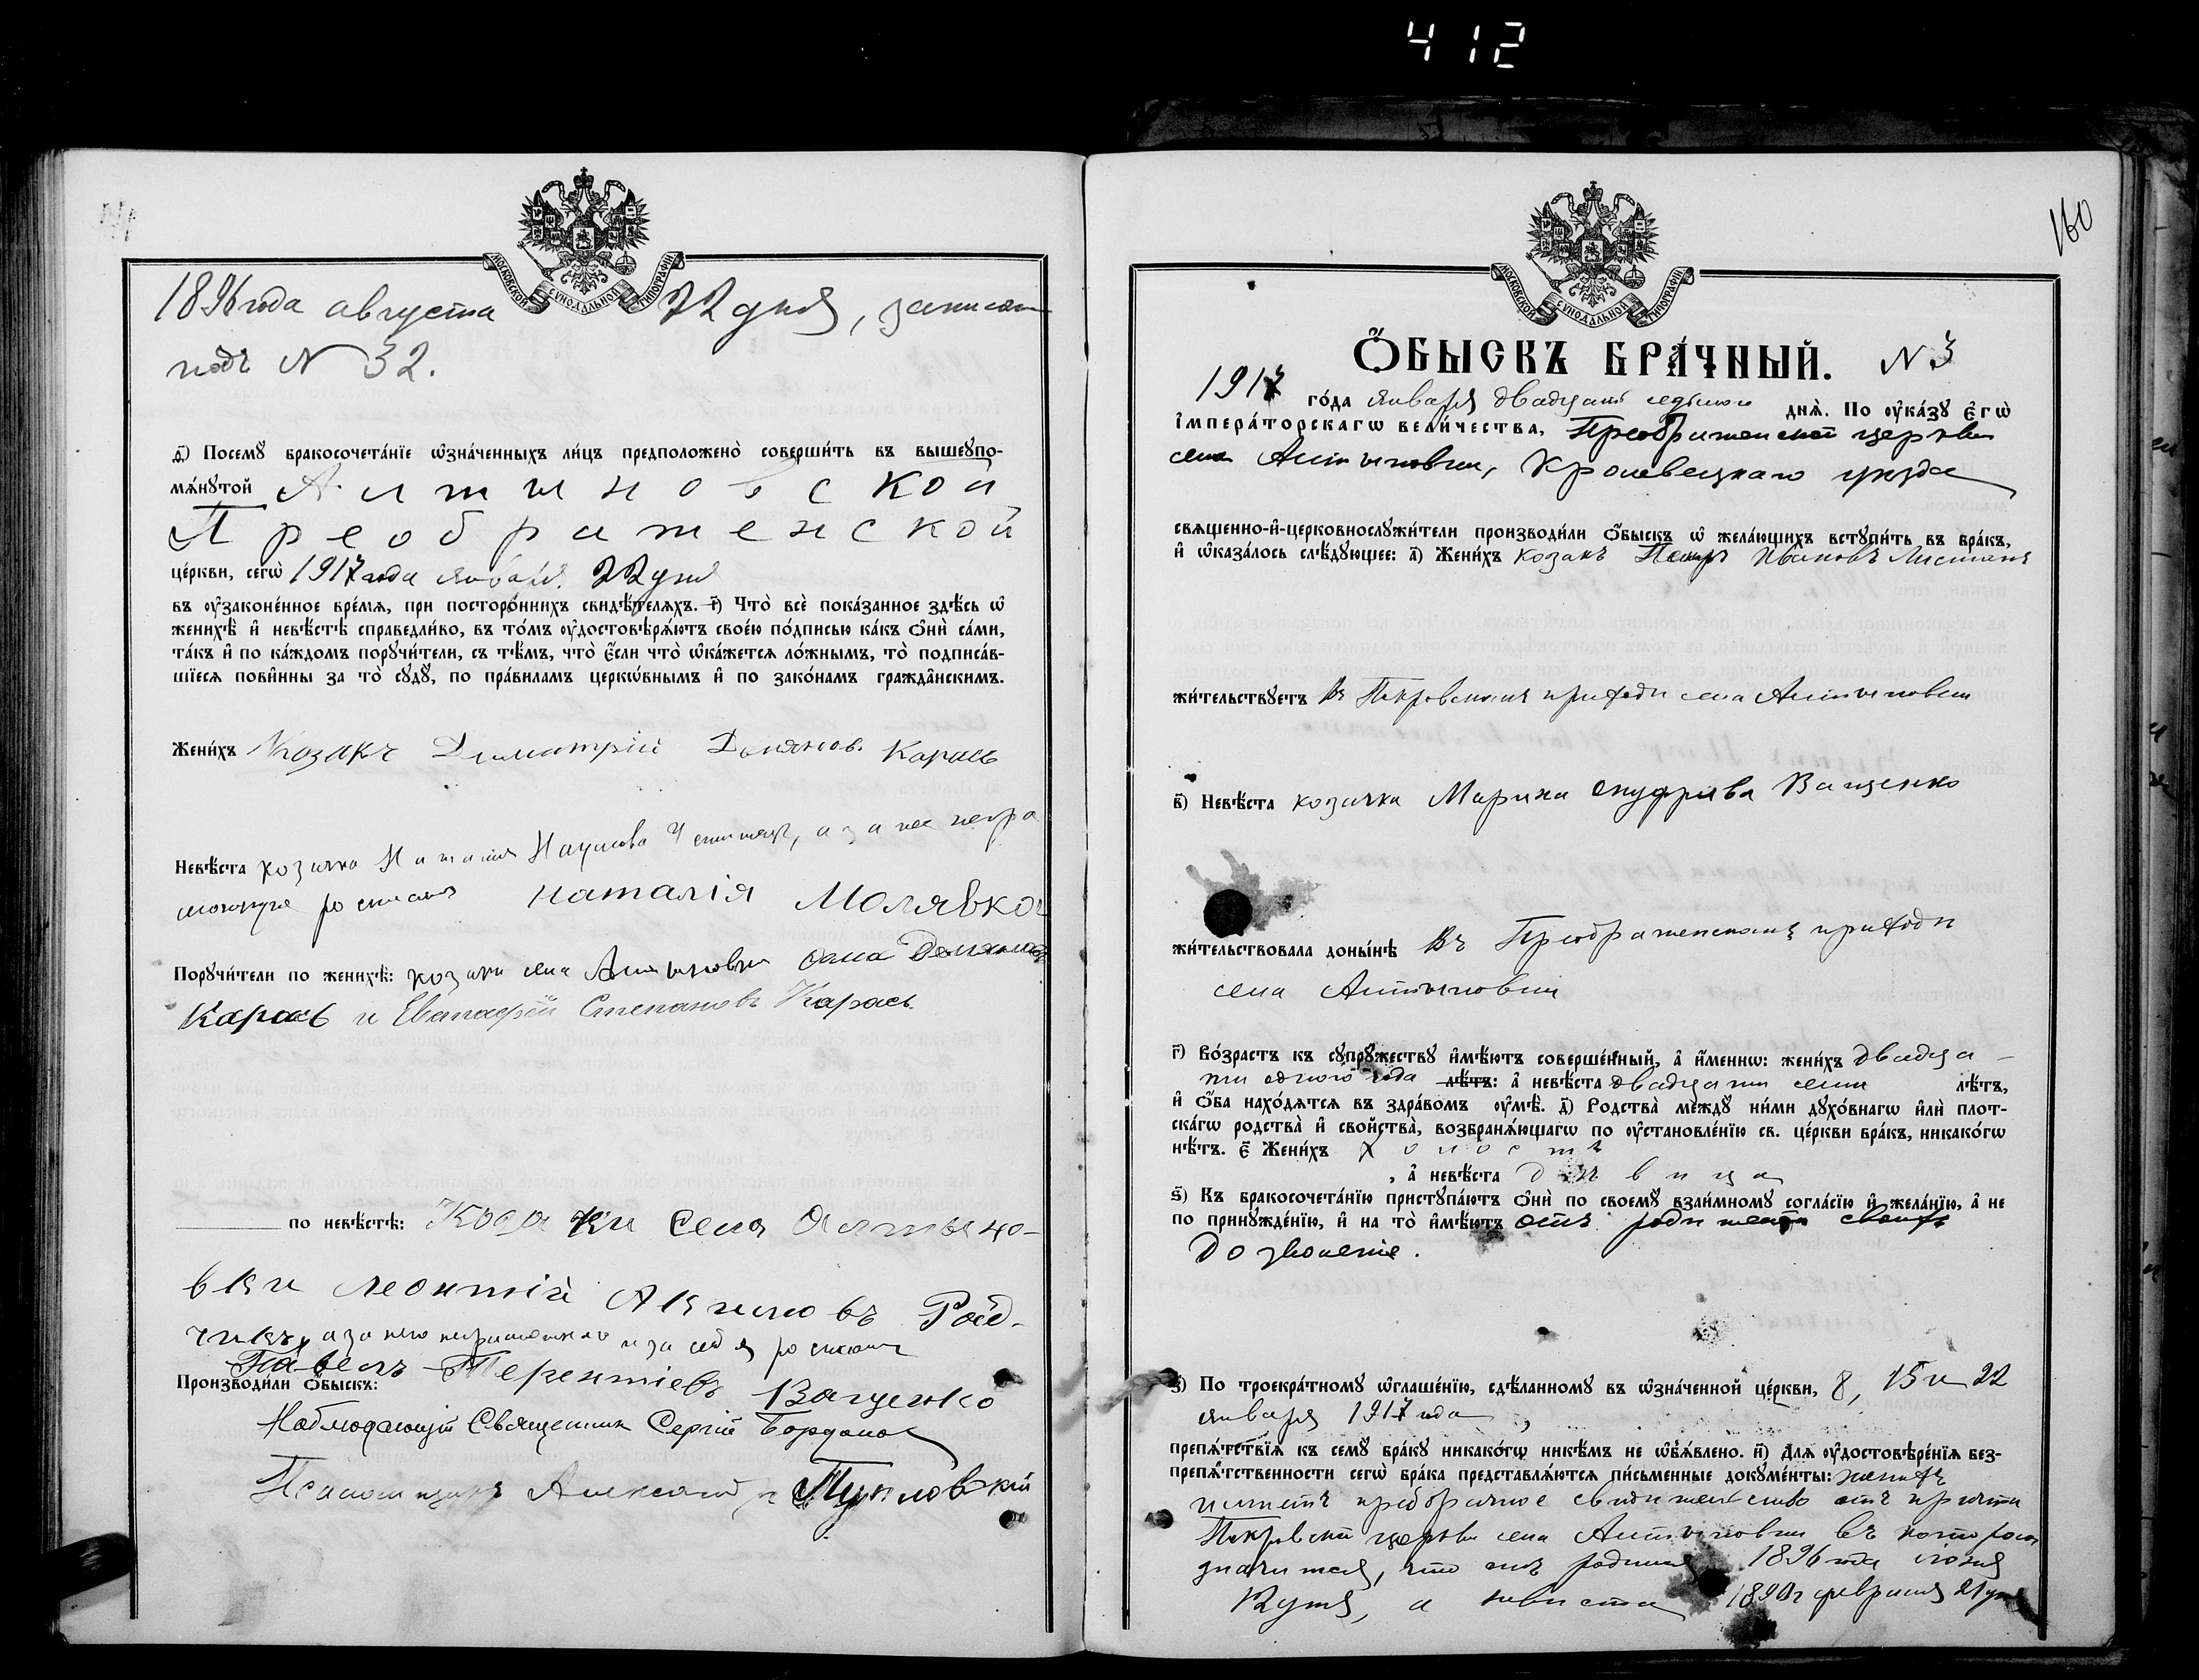 412
МОСКОВСКОЙ СѴНОДАЛЬНОЙ ТИПОГРАФІИ
1896 года августа 22 дня, записан
подъ N 32.
д҃) Посемꙋ̀ бракосочета́нїе ѡ҆зна́ченныхъ ли́цъ предположено̀ соверши́ть въ вышеꙋпо-
мѧ́нꙋтой Алтыновской
Преображенской
це́ркви, сегѡ̀ 1917 года января 22 дня
въ ᲂу҆законе́нное вре́мѧ, при посторо́ннихъ свидѣ́телѧхъ. і҃) Что̀ всѐ пока́занное здѣ́сь ѡ҆
женихѣ̀ и҆ невѣ́стѣ справедли́во, въ то́мъ ᲂу҆достовѣрѧ́ютъ свое́ю по́дписью ка́къ ѻ҆нѝ са́ми,
та́къ и҆ по ка́ждомъ порꙋчи́тели, съ тѣ́мъ, что̀ є҆́сли что̀ ѡ҆ка́жетсѧ ло́жнымъ, то̀ подписа́в-
шїесѧ пови́нны за то̀ сꙋдꙋ̀, по пра́виламъ церкѡ́внымъ и҆ по зако́намъ гражда̂нскимъ.
Жени́хъ Козакъ Димитрій Демянов. Карась
Невѣ́ста козачка Наталия Наумова, а за нее негра
мотную росписался Наталія Молявко
Порꙋчи́тели по женихѣ̀: козаки села Алтыновки Демянов
Карась и Степановъ Карась
по невѣ́стѣ: Козаки Села Алтыно-
вки Леонтій Акимовъ Рой-
чикъ, а за него неграмотного и за себя росписался
Павелъ Терентіевъ Ващенко
Производи́ли ѻ҆́быскъ:
Наблюдающій Священник Сергій
Псаломщикъ Александръ
160
МОСКОВСКОЙ СѴНОДАЛЬНОЙ ТИПОГРАФІИ
Ѻ҆́БЫСКЪ БРА́ЧНЫЙ. N 3
1917 го́да января двадцать седьмого днѧ̀. По ᲂу҆ка́зꙋ є҆гѡ̀
і҆мпера́торскагѡ вели́чества, Преображенской церкви
села Алтыновки, Кролевецкаго уезда
свѧще́нно-и҆-церковнослꙋжи́тели производи́ли ѻ҆́быскъ ѡ҆ жела́ющихъ встꙋпи́ть въ бра́къ,
и҆ ѡ҆каза́лось слѣ́дꙋющее: а҃) Жени́хъ козакъ Петръ Ивановъ
жи́тельствꙋетъ въ Покровскомъ приходе села Алтыновки
в҃) Невѣ́ста козачка Марина Ващенко
жи́тельствовала доны́нѣ въ Преображенскомъ приходе
села Алтыновки
г҃) Во́зрастъ къ сꙋпрꙋ́жествꙋ и҆мѣ́ютъ соверше́нный, а҆ и҆́меннѡ: жени́хъ двадца-
ти одного года лѣ́тъ: а҆ невѣ́ста двадцати семи лѣ́тъ,
и҆ ѻ҆́ба нахо́дѧтсѧ въ здра́вомъ ᲂу҆мѣ̀. д҃) Родства̀ междꙋ̀ ни́ми дꙋхо́внагѡ и҆лѝ плот-
ска́гѡ родства̀ и҆ сво́йства̀, возбранѧ́ющагѡ по ᲂу҆становле́нїю св. це́ркви бра́къ, никако́гѡ
нѣ́тъ. є҃ Жени́хъ холостъ
, а҆ невѣ́ста девица
ѕ҃) Къ бракосочета́нїю пристꙋпа́ютъ ѻ҆нѝ по своемꙋ̀ взаи́мномꙋ согла́сїю и҆ жела́нїю, а҆ не
по принꙋжде́нїю, и҆ на то̀ и҆мѣ́ютъ отъ родителей своихъ
дозволеніе.
з҃) По троекра́тномꙋ ѡ҆глаше́нїю, сдѣ́ланномꙋ въ ѡ҆зна́ченной це́ркви, 8, 15 и 22
января 1917 года,
препѧ́тствїѧ къ семꙋ̀ бра́кꙋ никако́гѡ никѣ́мъ не ѡ҆б̾ѧ́влено. и҃) Длѧ̀ ᲂу҆достовѣре́нїѧ без-
препѧ́тственности сегѡ̀ бра́ка представлѧ́ютсѧ пи́сьменные докꙋме́нты: жених
имеетъ предбрачное свидетельство отъ причта
Покровской церкви села Алтыновки въ котором
значится, что онъ родился 1896 года
12 дня, а невеста февраля 21 дня